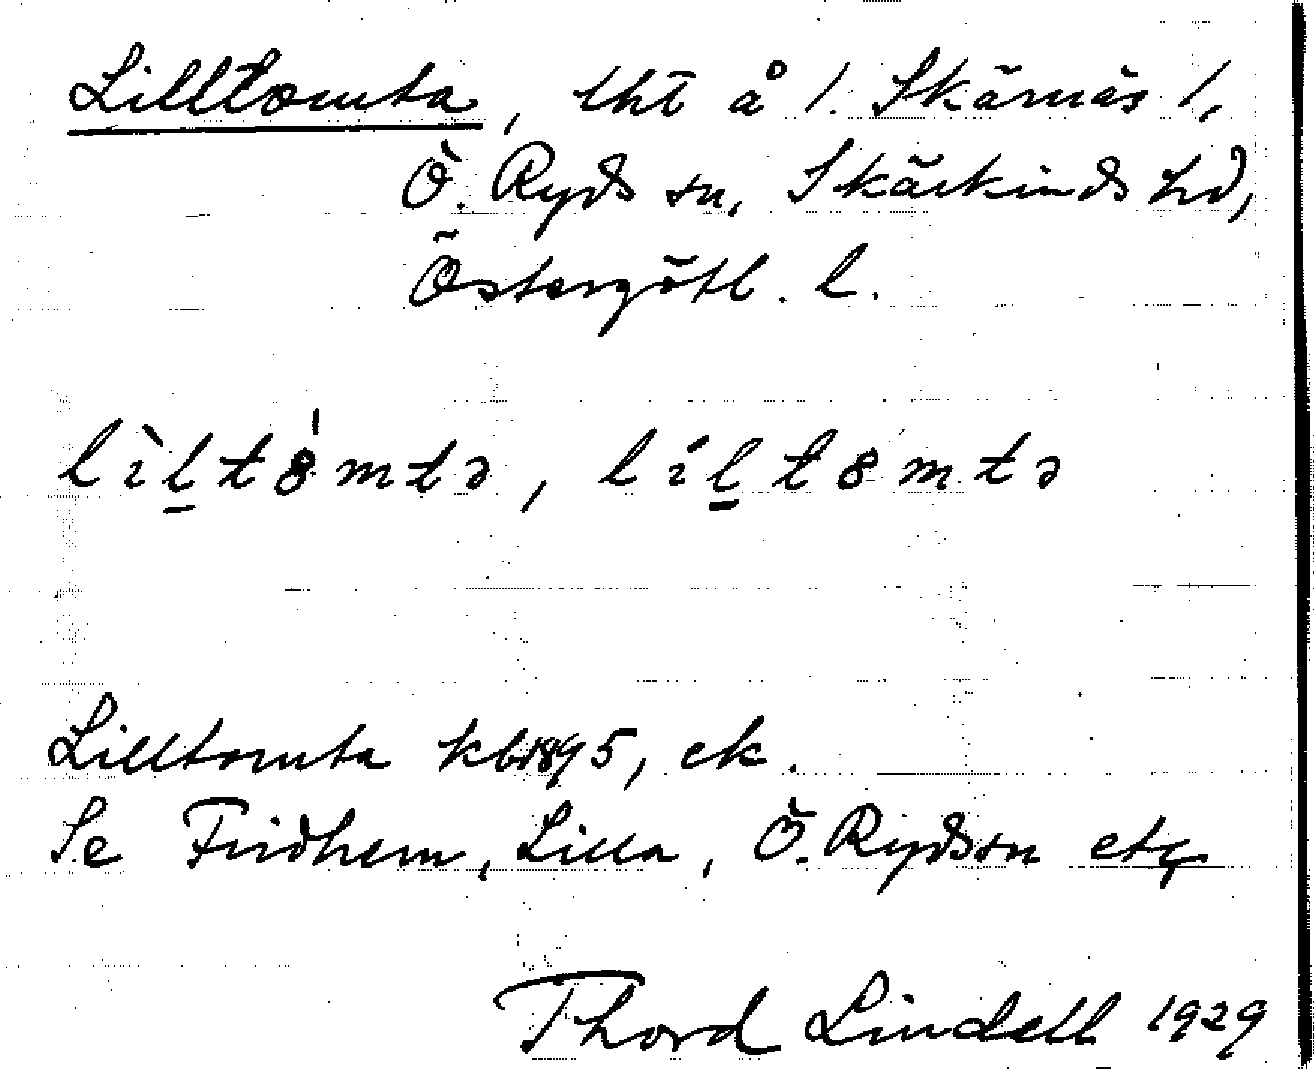 Lilltomta, lht å 1. Skärnäs 1,
Ö. Ryds sn, Skärkinds hd,
Östergötl. l.
lìḻt8̍mtə, líḻt8mtə
Lilltomta kb 1895, ek.
Se Fridhem, Lilla, Ö. Ryds sn etc
Thord Lindell 1929